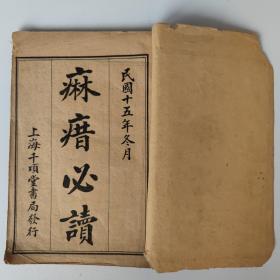 民國十五年冬月
痳瘄必讀
上海千頃堂書局發行